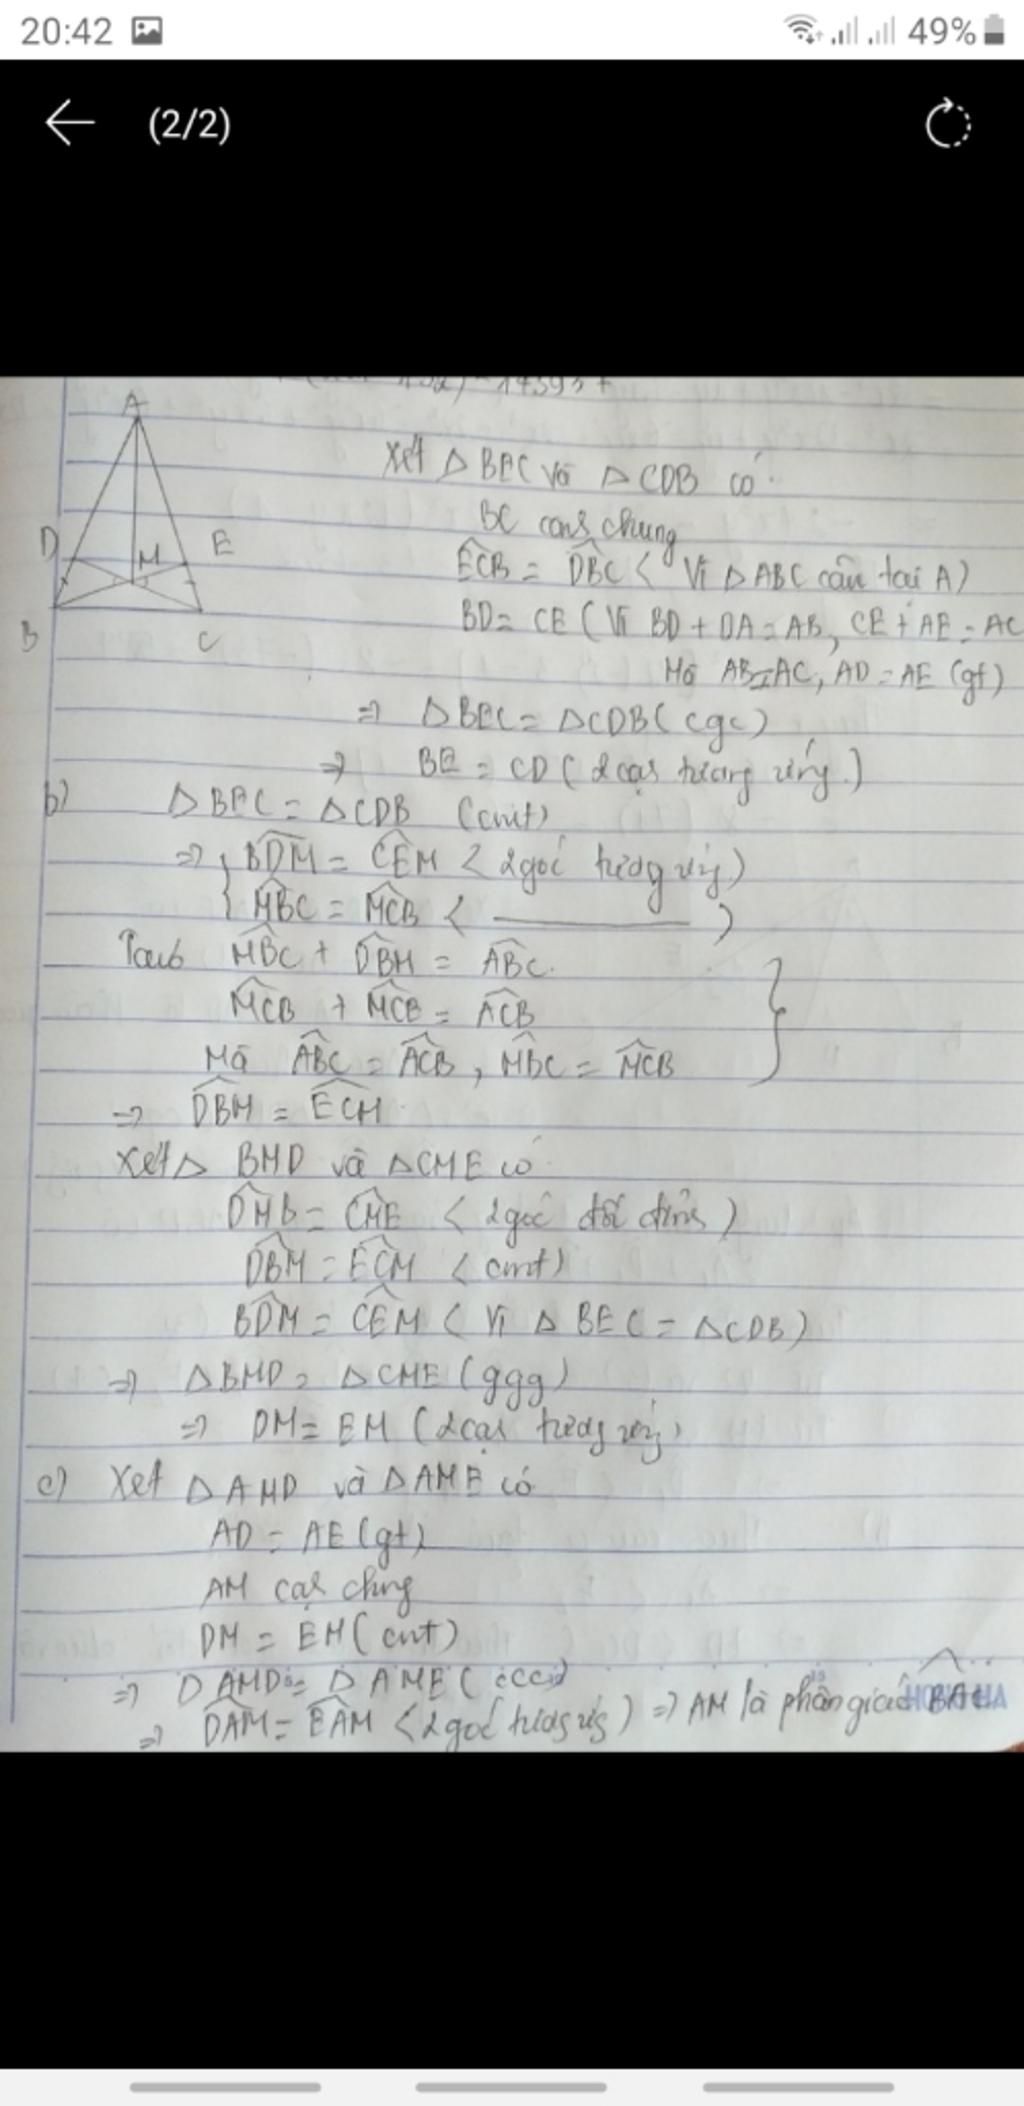 20:42 49%
(2/2)
A
D M E
B C
Xét △ BEC và △ CDB có
BC cạnh chung
ECB = DBC < Vì △ ABC cân tại A)
BD = CE ( Vì BD + DA = AB, CE + AE = AC
Mà AB = AC, AD = AE (gt)
=> △ BEC = △CDB ( cgc )
=> BE = CD ( 2 cạ tương ứng )
b) △ BEC = △ CDB (cmt)
=> { BDM = CEM < 2 góc tương ứng )
{ MBC = MCB < ——— )
MBC + DBM = ABC.
MCB + MCE = ACB
Mà ABC = ACB , MBC = MCB }
=> DBM = ECM
Xét △ BMD và △ CME có
DMB = CME < 2 góc đối đỉnh )
DBM = ECM < cmt)
BDM = CEM < Vì △ BEC = △CDB)
=> △ BMD = △ CME ( ggg )
=> DM = EM ( 2 cạ tương ứng )
c) Xét △ AMD và △ AME có
AD = AE (gt)
AM cạ chung
DM = EM ( cmt )
=> △ AMD = △ AME ( ccc )
=> DAM = EAM < 2 góc tương ứng ) => AM là phân giác BAC